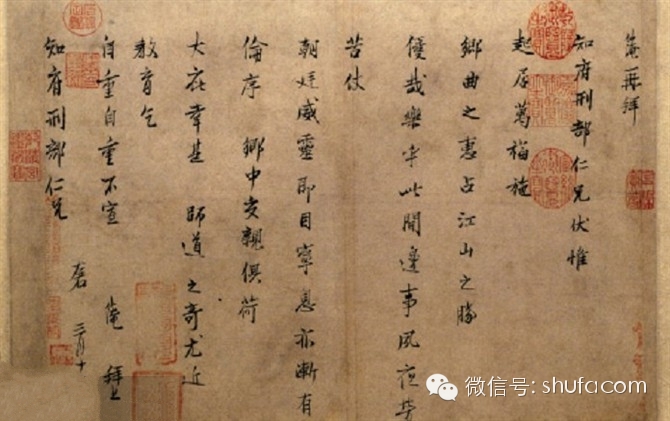 淹再拜
知府刑部仁兄伏惟
起居萬福施
鄉曲之惠占江山之勝
優哉樂乎此間邊事夙夜勞
苦仗
朝廷威靈即目寧息亦漸有
倫序 鄉中交親俱荷
大庇幸甚 師道之奇尤近
教育乞
自重自重不宣 淹 拜上
知府刑部仁兄
三月十
微信号: shufacom